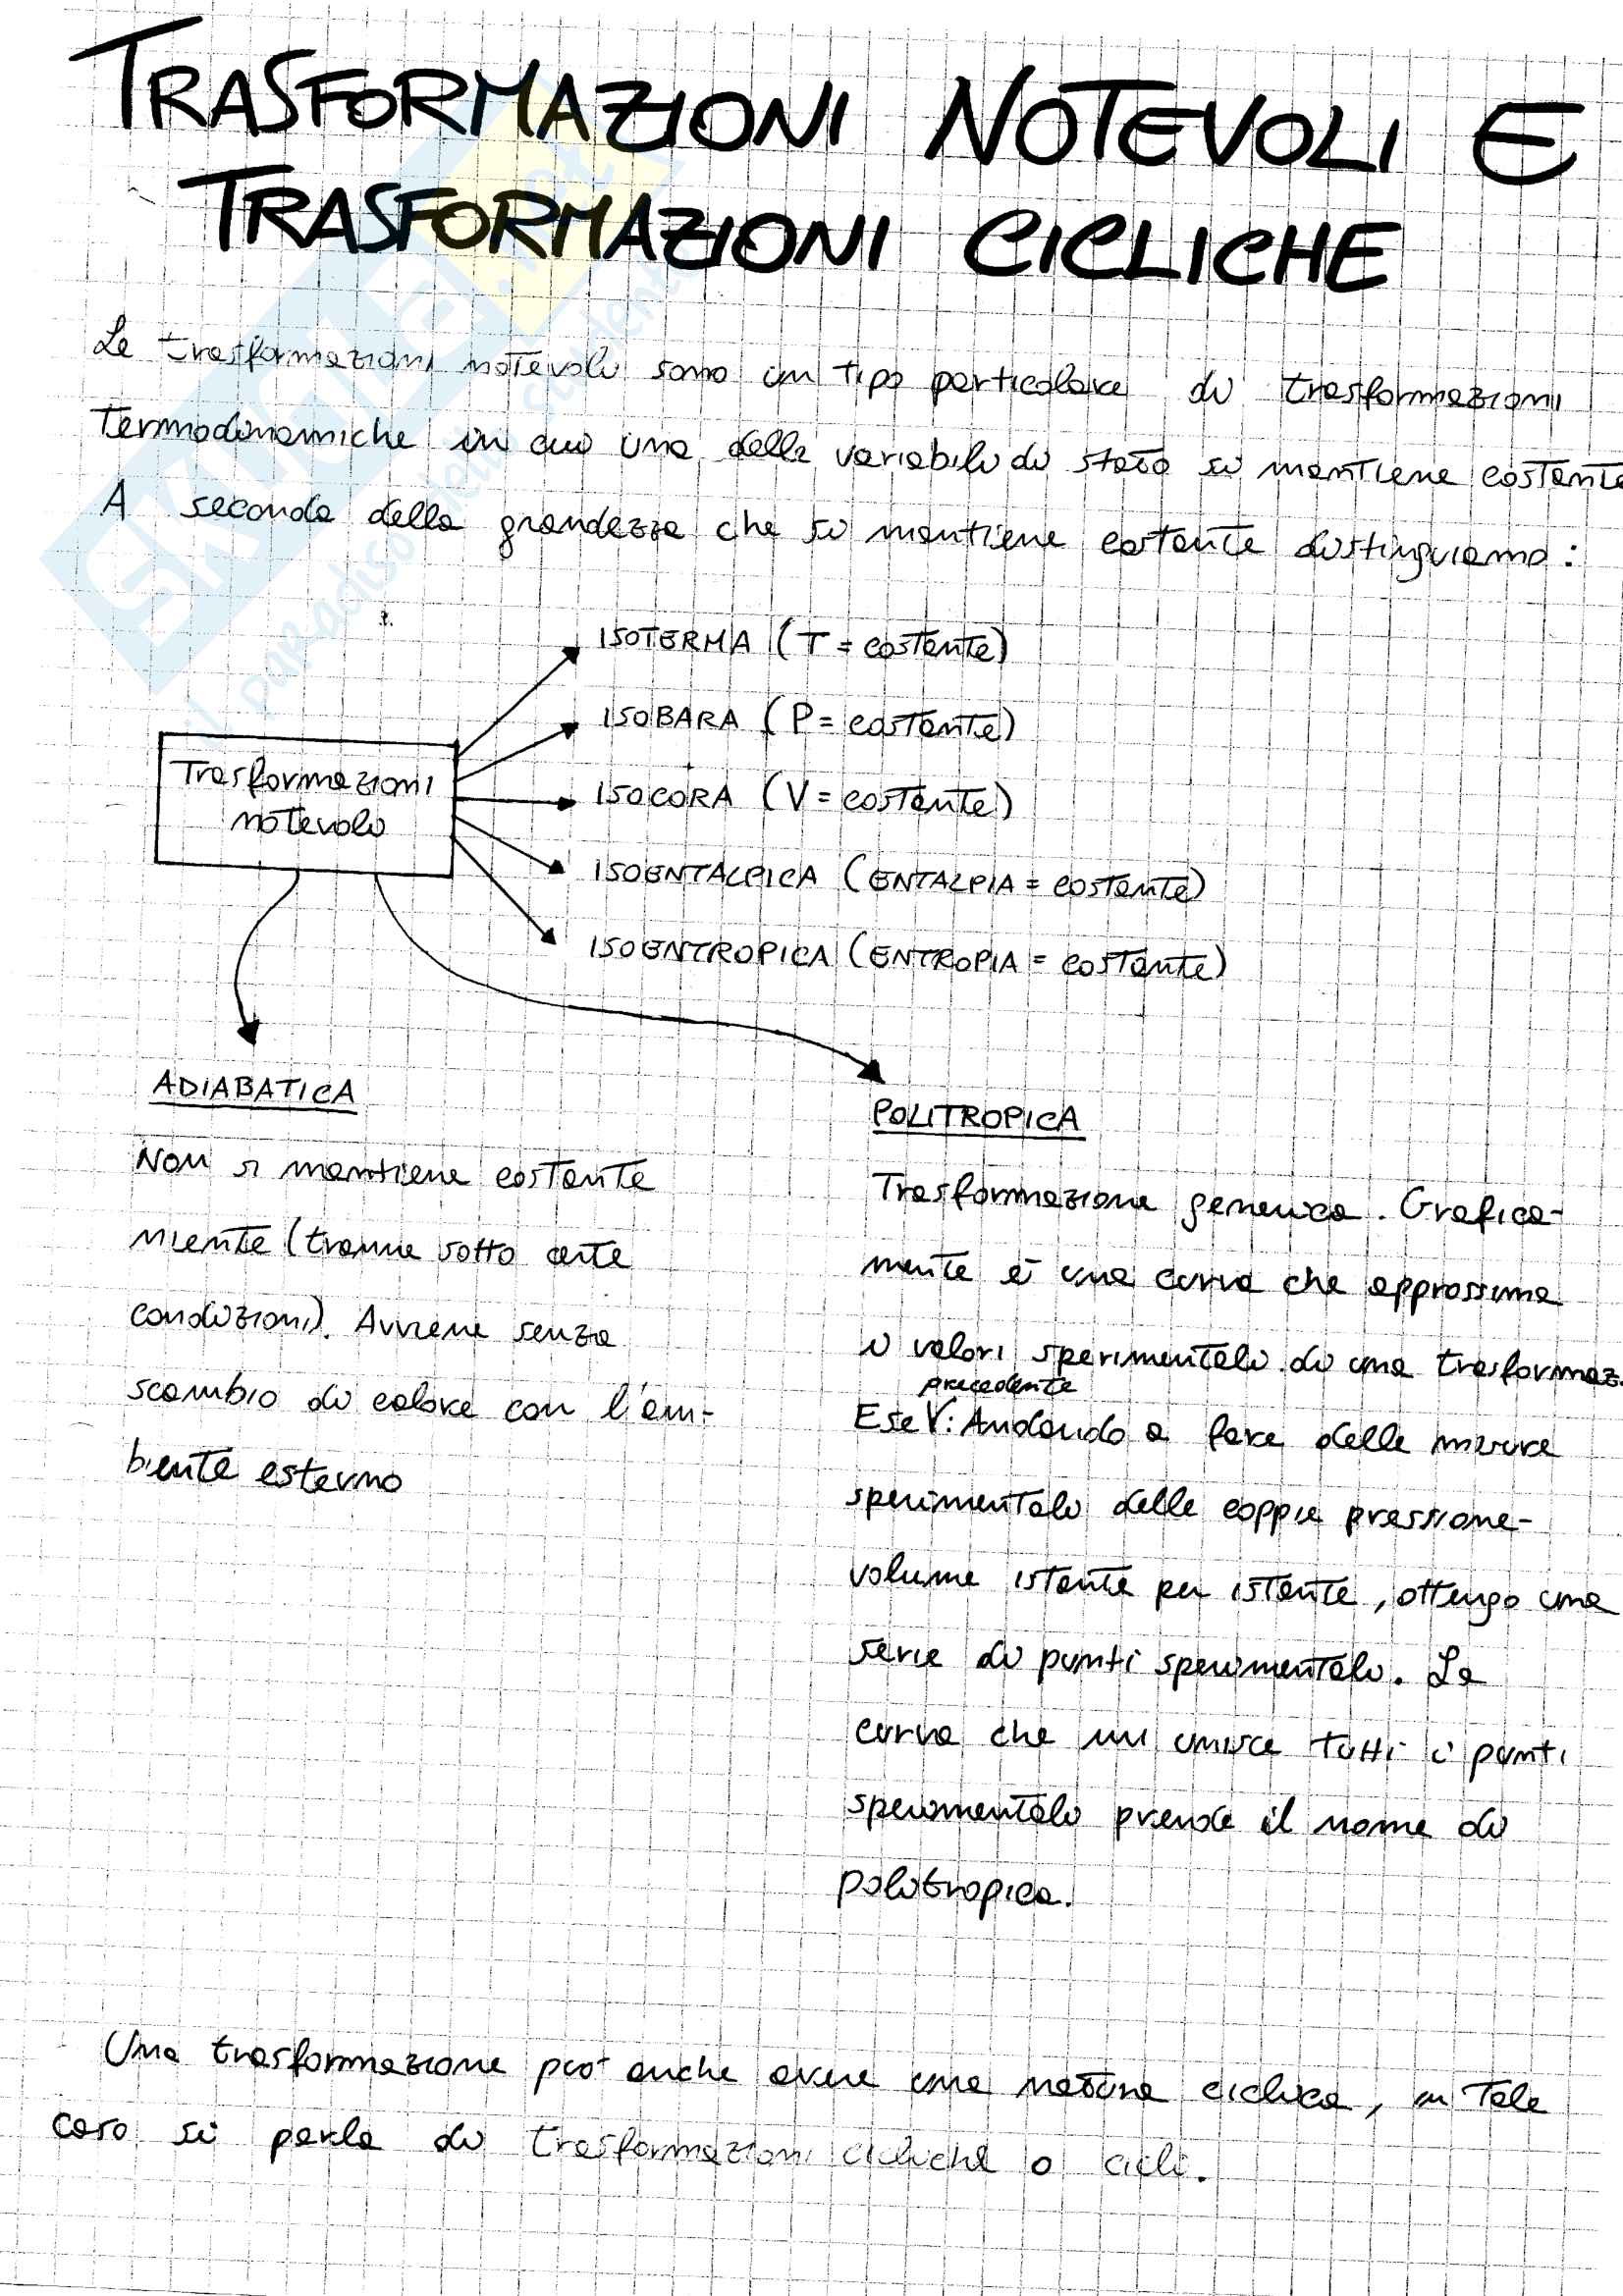 TRASFORMAZIONI NOTEVOLI E
TRASFORMAZIONI CICLICHE
Le trasformazioni notevoli sono un tipo particolare di trasformazioni
termodinamiche in cui una delle variabili di stato si mantiene costante
A seconda della grandezza che si mantiene costante distinguiamo:
ISOTERMA (T = costante)
ISOBARA (P = costante)
ISOCORA (V = costante)
ISOENTALPICA (ENTALPIA = costante)
ISOENTROPICA (ENTROPIA = costante)
Trasformazioni
notevoli
ADIABATICA
Non si mantiene costante
niente (tranne sotto certe
condizioni). Avviene senza
scambio di calore con l'am-
biente esterno
POLITROPICA
Trasformazione generica. Grafica-
mente è una curva che approssima
i valori sperimentali di una trasformaz.
precedente
Es: Andando a fare delle misure
sperimentali delle coppie pressione-
volume istante per istante, ottengo una
serie di punti sperimentali. La
curva che mi unisce tutti i punti
sperimentali prende il nome di
politropica.
Una trasformazione può anche avere una natura ciclica, in tale
caso si parla di trasformazioni cicliche o cicli.